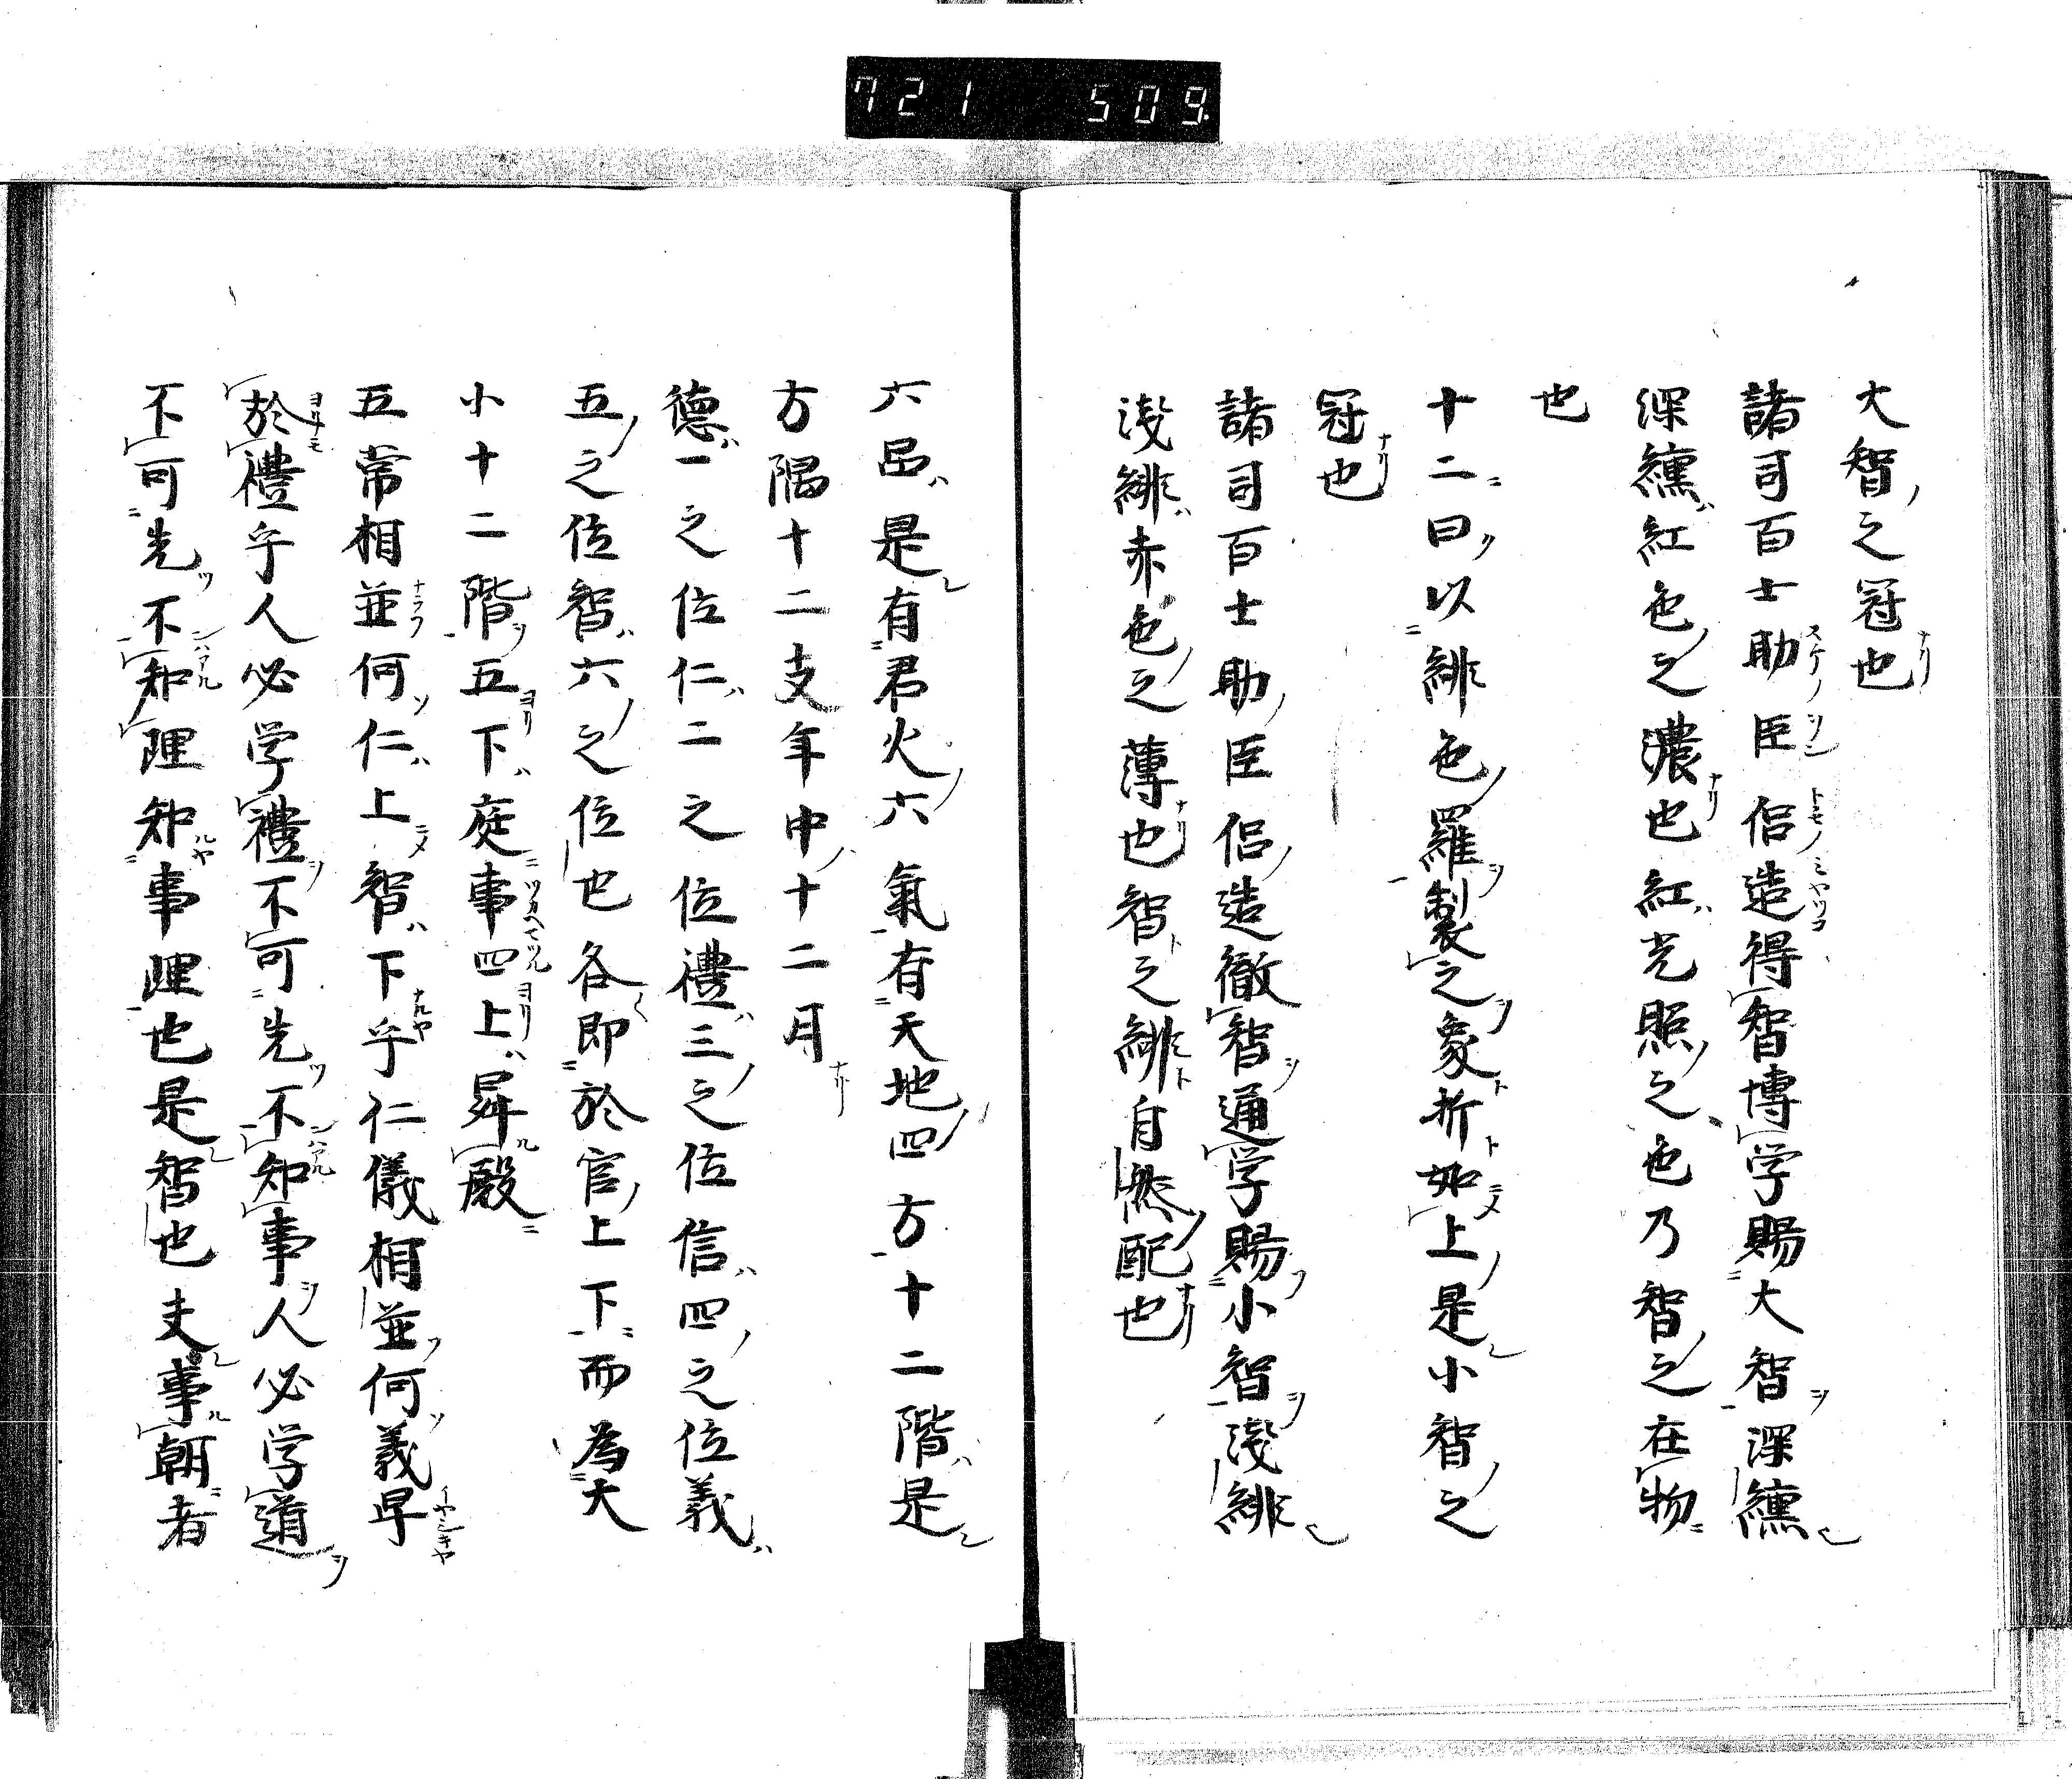 721 509
大智之冠也
諸司百士助臣侶造得智博学賜大智深纁
深纁紅色之濃也紅光照之色乃智之在物
也
十二曰以緋色羅製之象折如上是小智之
冠也
諸司百士助臣侶造徹智通学賜小智淺緋
淺緋赤色之薄也智之緋自然配也
六品是有君火六氣有天地四方十二階是
方隅十二支年中十二月
德一之位仁二之位禮三之位信四之位義
五之位智六之位也各即於官上下而為大
小十二階五下庭事四上昇殿
五常相並何仁上智下乎仁儀相並何義早
於禮乎人必学禮不可先不知事人必学道
不可先不知理知事理也是智也夫事朝者